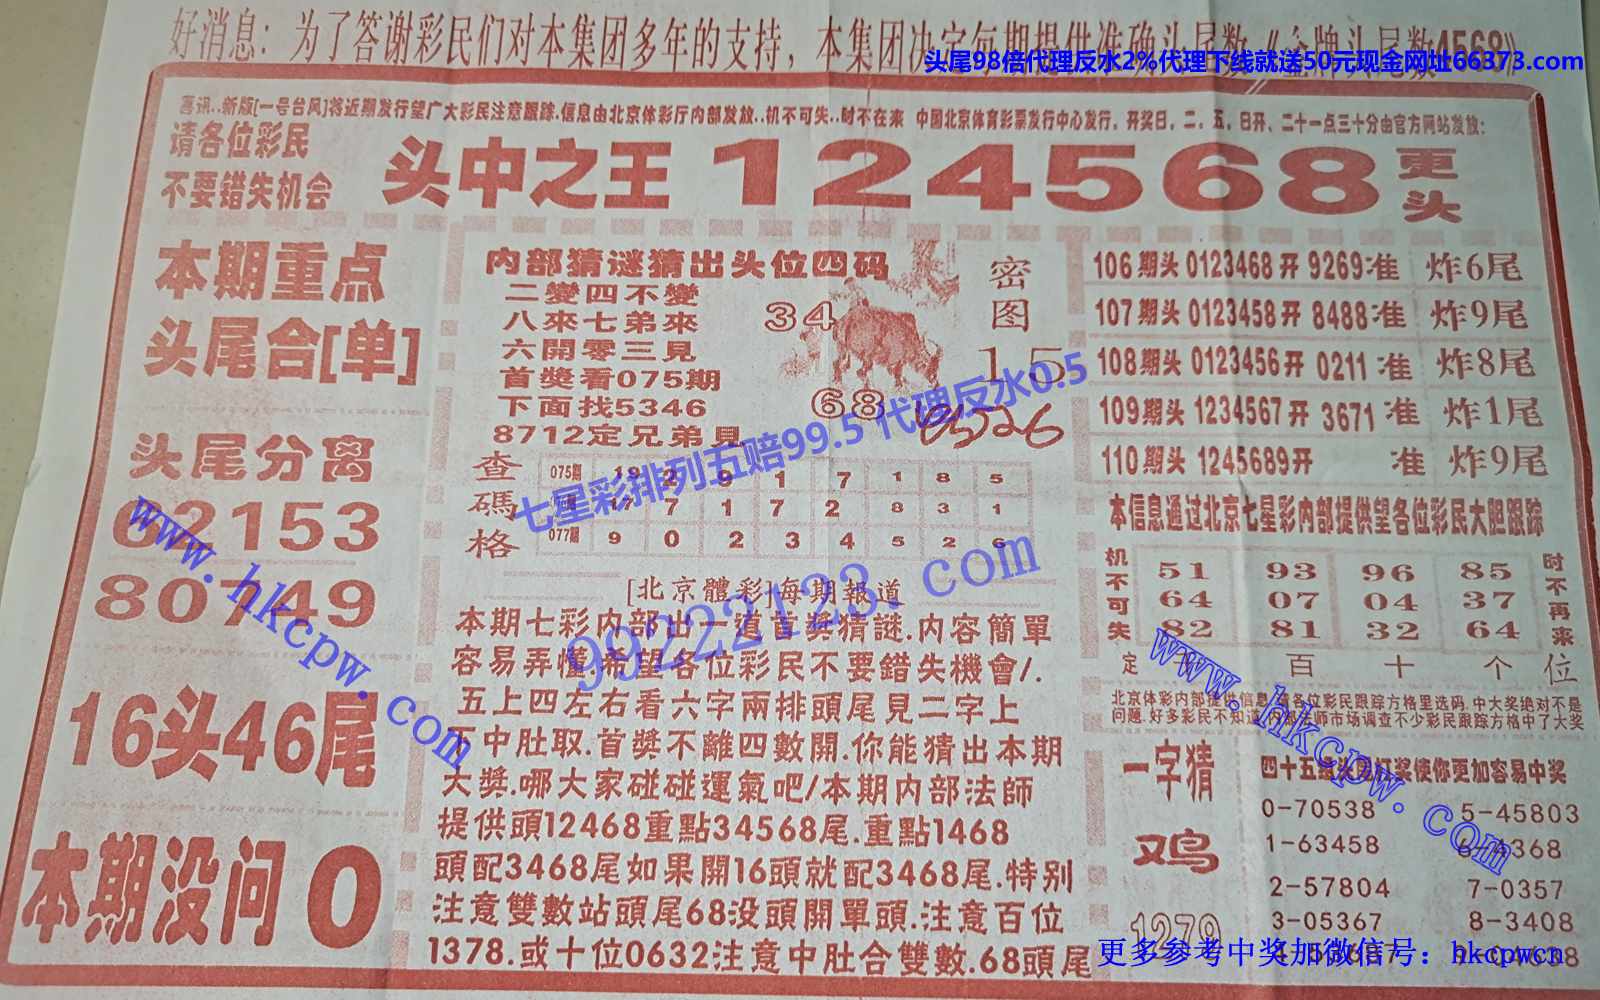 好消息：为了答谢彩民们对本集团多年的支持，本集团决定每期提供准确头尾数《金牌头尾数4568》
头尾98倍代理反水2%代理下线就送50元现金网址66373.com
喜讯..新版[一号台风]将近期发行望广大彩民注意跟踪.信息由北京体彩厅内部发放..机不可失..时不在来 中国北京体育彩票发行中心发行，开奖日，二、五、日开、二十一点三十分由官方网站发放：
请各位彩民
不要错失机会
头中之王 124568 更头
本期重点
头尾合[单]
头尾分离
62153
80749
16头46尾
本期没问0
内部猜谜猜出头位四码
二變四不變
八來七弟來
六開零三見
首獎看075期
下面找5346
8712定兄弟見
密图
34
15
68
6526
查碼格
075期 19 2 9 1 7 1 8 5
17 7 1 7 2 8 3 1
077期 9 0 2 3 4 5 2 6
七星彩排列五赔99.5 代理反水0.5
99222123.com
[北京體彩]每期報道
本期七彩内部出一道首獎猜謎.内容簡單
容易弄懂.希望各位彩民不要錯失機會/.
五上四左右看六字兩排頭尾見二字上
下中肚取.首獎不離四數開.你能猜出本期
大獎.哪大家碰碰運氣吧/本期内部法師
提供頭12468重點34568尾.重點1468
頭配3468尾如果開16頭就配3468尾.特别
注意雙數站頭尾68没頭開單頭.注意百位
1378.或十位0632注意中肚合雙數.68頭尾
106期头0123468开9269准 炸6尾
107期头0123458开8488准 炸9尾
108期头0123456开0211准 炸8尾
109期头1234567开3671准 炸1尾
110期头1245689开 准 炸9尾
本信息通过北京七星彩内部提供望各位彩民大胆跟踪
机不可失
51 93 96 85
64 07 04 37
82 81 32 64
时不再来
定 百 十 个 位
北京体彩内部提供信息,请各位彩民跟踪方格里选码.中大奖绝对不是
问题.好多彩民不知道,内部法师市场调查不少彩民跟踪方格中了大奖
一字猜
鸡
1279
四十五组头尾开奖使你更加容易中奖
0-70538 5-45803
1-63458
2-57804 7-0357
3-05367 8-3408
www.hkcpw.com
www.hkcpw.com
更多参考中奖加微信号：hkcpwcn